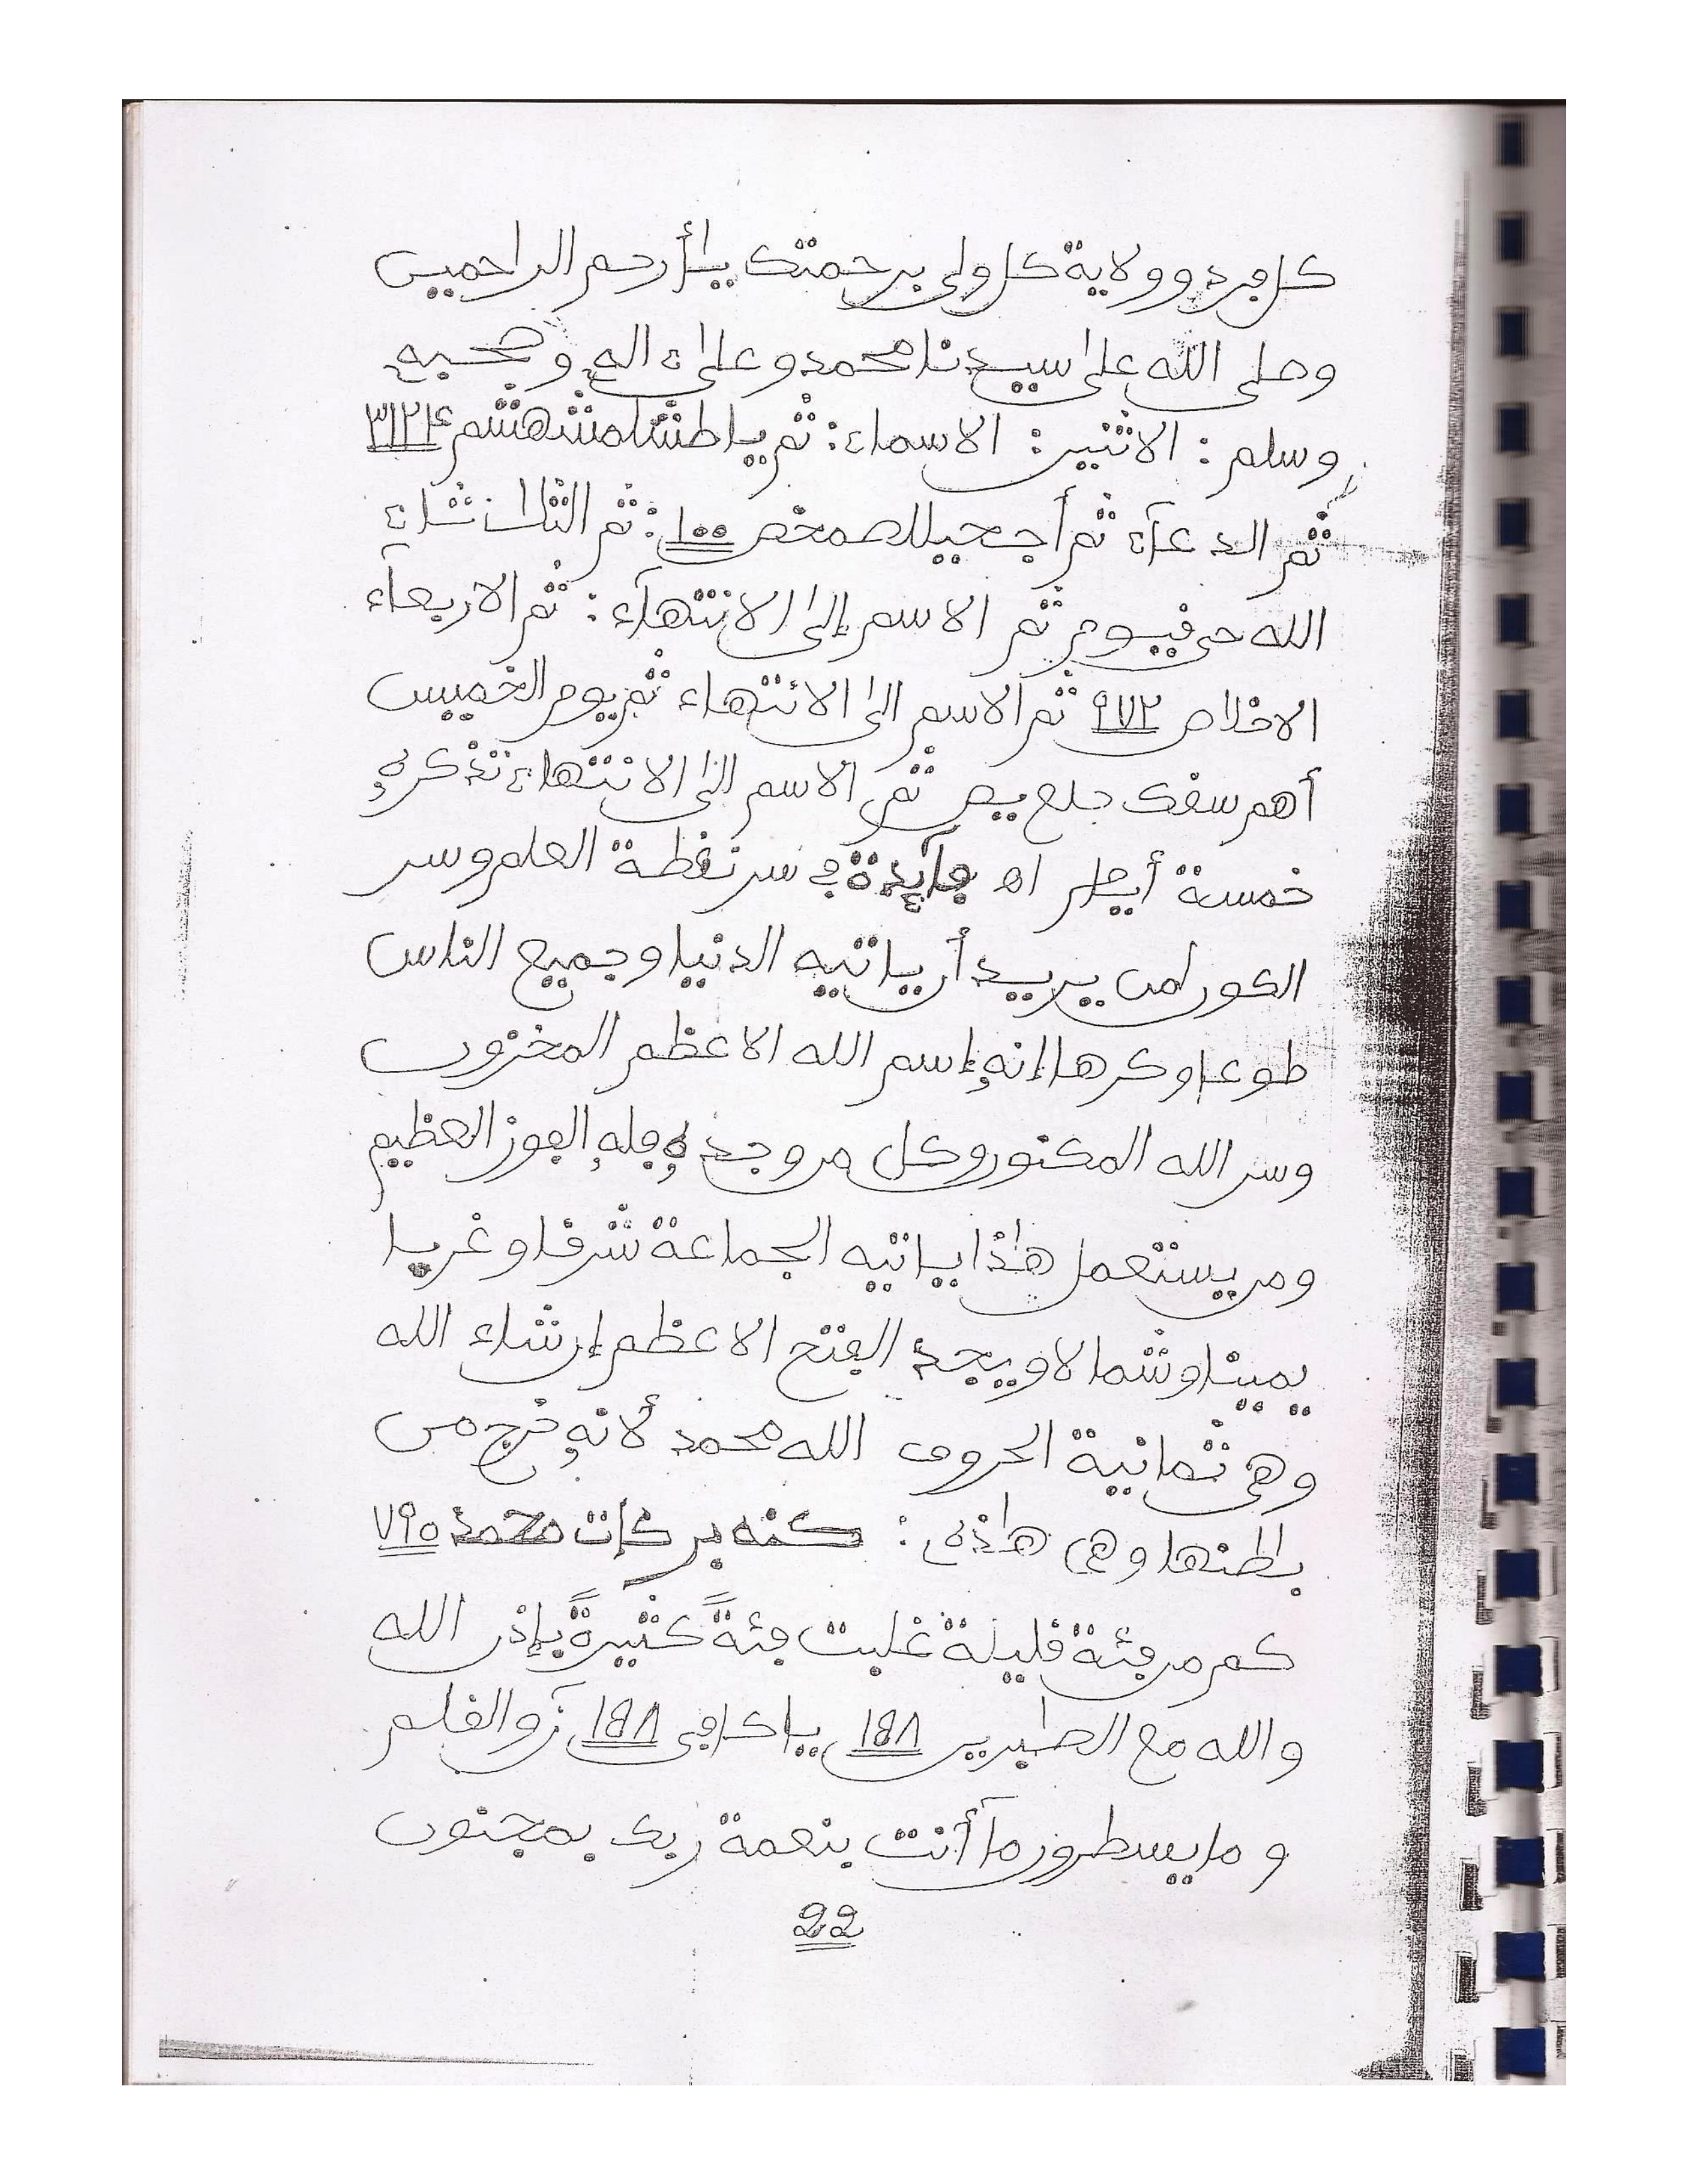 كل فرد وولاية كل ولي برحمتك يا أرحم الراحمين
وصلى الله على سيدنا محمد وعلى ءاله وصحبه
وسلم : الاثنين : الاسماء : ثم ٣١٢٤
ثم الدعآء ثم ١٠٠ : ثم الثلاث
الله حي قيوم ثم الاسم إلى الانتهآء : ثم الاربعآء
الاخلاص ٩٧٢ ثم الاسم الى الانتهاء ثم يوم الخميس
أهم سقك حلع يص ثم الاسم الى الانتهاء تذكره
خمسة أيام اه فآئدة في سر نقطة العلم وسر
الكون لمن يريد أن ياتيه الدنيا وجميع الناس
طوعا وكرها إنه إسم الله الاعظم المخزون
وسر الله المكنون وكل من وجده فله الفوز العظيم
ومن يستعمل هاذا ياتيه الجماعة شرقا وغربا
يمينا وشمالا ويجد الفتح الاعظم إن شاء الله
وهي ثمانية الحروف الله محمد لأنه خرج من
بطنها وهي هاذه : بركات محمد ٧٩٥
كم من فئة قليلة غلبت فئةً كثيرةً بإذن الله
والله مع الصابرين ١٨٨ يا كافي ١٨٨ ن والقلم
وما يسطرون ما أنت بنعمة ربك بمجنون
22